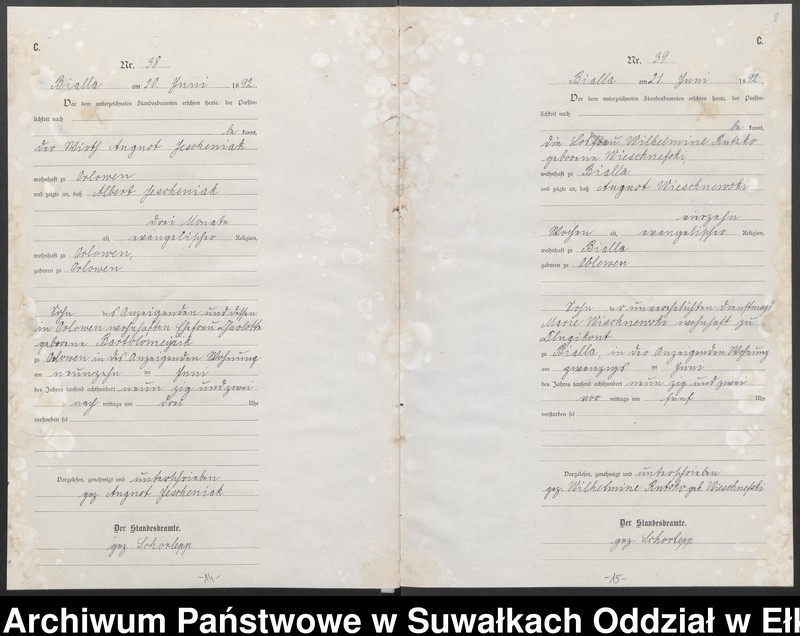 C.
Nr. 38
Bialla am 20. Juni 1892.
Vor dem unterzeichneten Standesbeamten erschien heute, der Persön-
lichkeit nach
be kannt,
der Wirth August Jescheniak
wohnhaft zu Orlowen
und zeigte an, daß Albert Jescheniak
drei Monate
alt, evangelischer Religion,
wohnhaft zu Orlowen,
geboren zu Orlowen
Sohn des Anzeigenden und dessen
in Orlowen wohnhaften Ehefrau Charlotte
geborene Bartolomeizik
zu Orlowen in des Anzeigenden Wohnung
am neunzehn ten Juni
des Jahres tausend achthundert neun zig und zwei
nach mittags um drei Uhr
verstorben sei
Vorgelesen, genehmigt und unterschrieben
gez. August Jescheniak
Der Standesbeamte.
gez. Schorlepp
-14-
8
C.
Nr. 39
Bialla am 21. Juni 1892
Vor dem unterzeichneten Standesbeamten erschien heute, der Persön-
lichkeit nach
be kannt,
die Losfrau Wilhelmine Rutzko
geborene Wieschnefski
wohnhaft zu Bialla
und zeigte an, daß August Wieschnewski
vierzehn
Wochen alt, evangelischer Religion,
wohnhaft zu Bialla
geboren zu Oblowen
Sohn der unverehelichten Dienstmagd
Marie Wischnewski wohnhaft zu
zu Bialla, in der Anzeigenden Wohnung
am zwanzigs ten Juni
des Jahres tausend achthundert neun zig und zwei
vor mittags um fünf Uhr
verstorben sei
Vorgelesen, genehmigt und unterschrieben
gez. Wilhelmine Rutzko geb. Wieschnefski
Der Standesbeamte.
gez. Schorlepp
-15-
Archiwum Państwowe w Suwałkach Oddział w Ełk